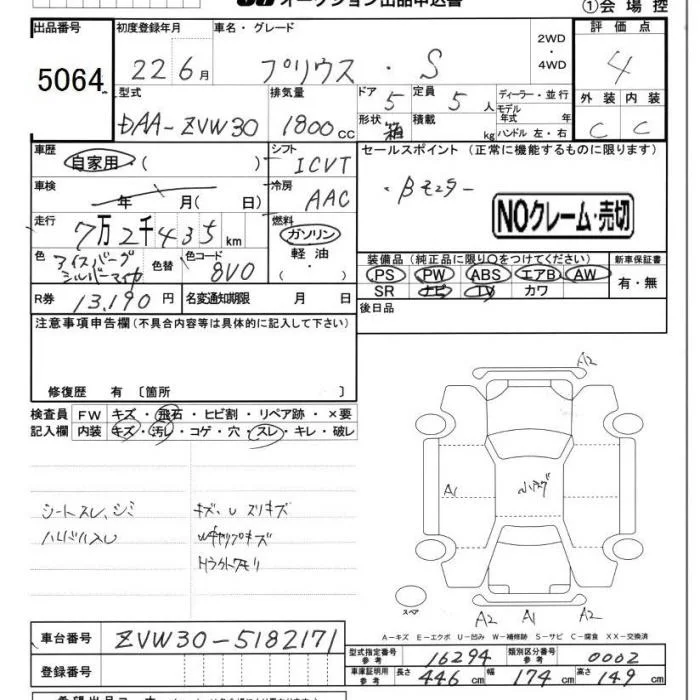 オークション出品申込書
①会場控
出品番号
5064
初度登録年月
22 6月
車名・グレード
プリウス ・ S
2WD
・
4WD
評価点
4
型式
DAA-ZVW30
排気量
1800 cc
ドア
5
定員
5 人
形状
箱
積載
kg
ディーラー・並行
モデル
年式 年
ハンドル 左・右
外装 内装
C C
車歴
自家用・( )
シフト
ICVT
セールスポイント (正常に機能するものに限ります)
NOクレーム・売切
車検
年 月( 日)
冷房
AAC
走行
7万2千435km
燃料
ガソリン
・
軽油
・
( )
色
アイスバーグ
シルバーマイカ
色替
色コード
8V0
装備品 (純正品に限り○をつけてください)
PS PW ABS エアB AW
SR ナビ TV カワ
新車保証書
有・無
R券
13,190 円
名変通知期限 月 日
後日品
注意事項申告欄(不具合内容等は具体的に記入して下さい)
修復歴 有 〔箇所 〕
検査員
記入欄
FW キズ・飛石・ヒビ割・リペア跡・×要
内装 キズ・汚レ・コゲ・穴・スレ・キレ・破レ
シートスレ、シミ
キズ、U スリキズ
A2
A1
スペア
A2 A1 A2
A-キズ E-エクボ U-凹み W-補修跡 S-サビ C-腐食 XX-交換済
車台番号
ZVW30-5182171
登録番号
型式指定番号
参考
16294
類別区分番号
参考
0002
車庫証明用
参考
長さ
446 cm
幅
174 cm
高さ
149 cm